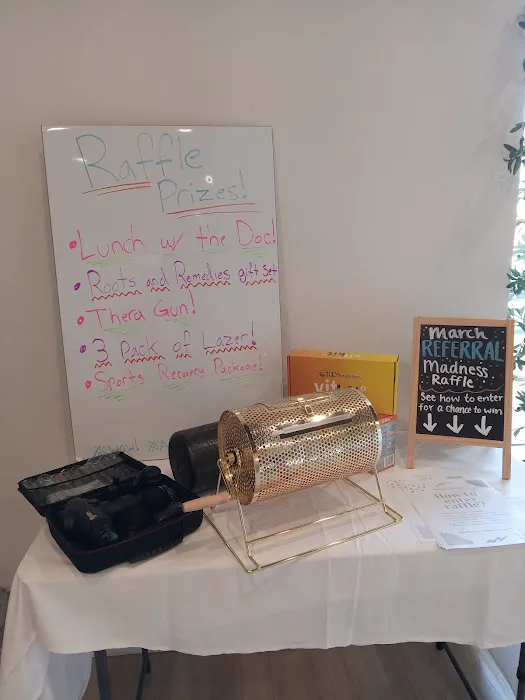 Raffle
Prizes!
• Lunch w/ the Doc!
• Roots and Remedies gift set
• Thera Gun!
• 3 Pack of Lazer!
• Sports Recovery Package!
March
REFERRAL
Madness
Raffle
See how to enter
for a chance to win
How to
enter
raffle?